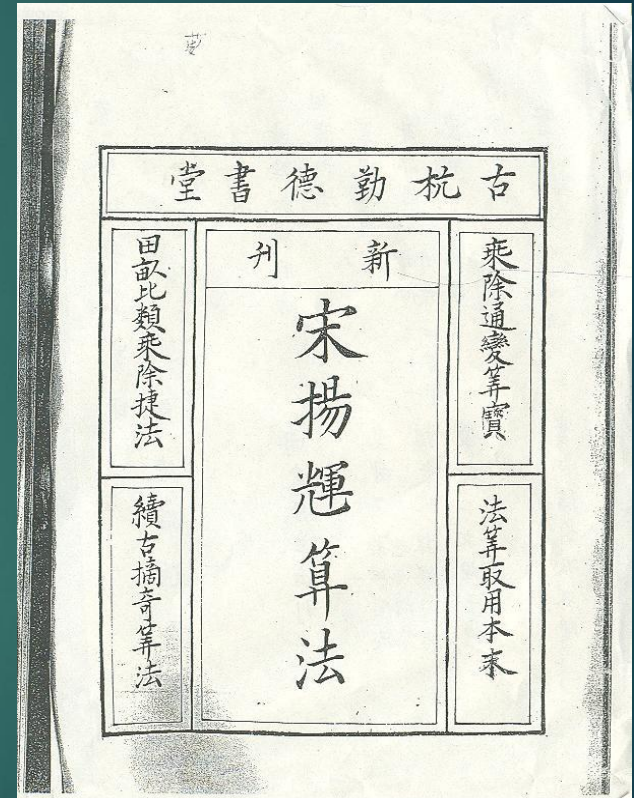 古杭勤德書堂
乘除通變筭寳
法筭取用本末
新刊
宋揚輝算法
田畝比類乘除捷法
續古摘奇筭法